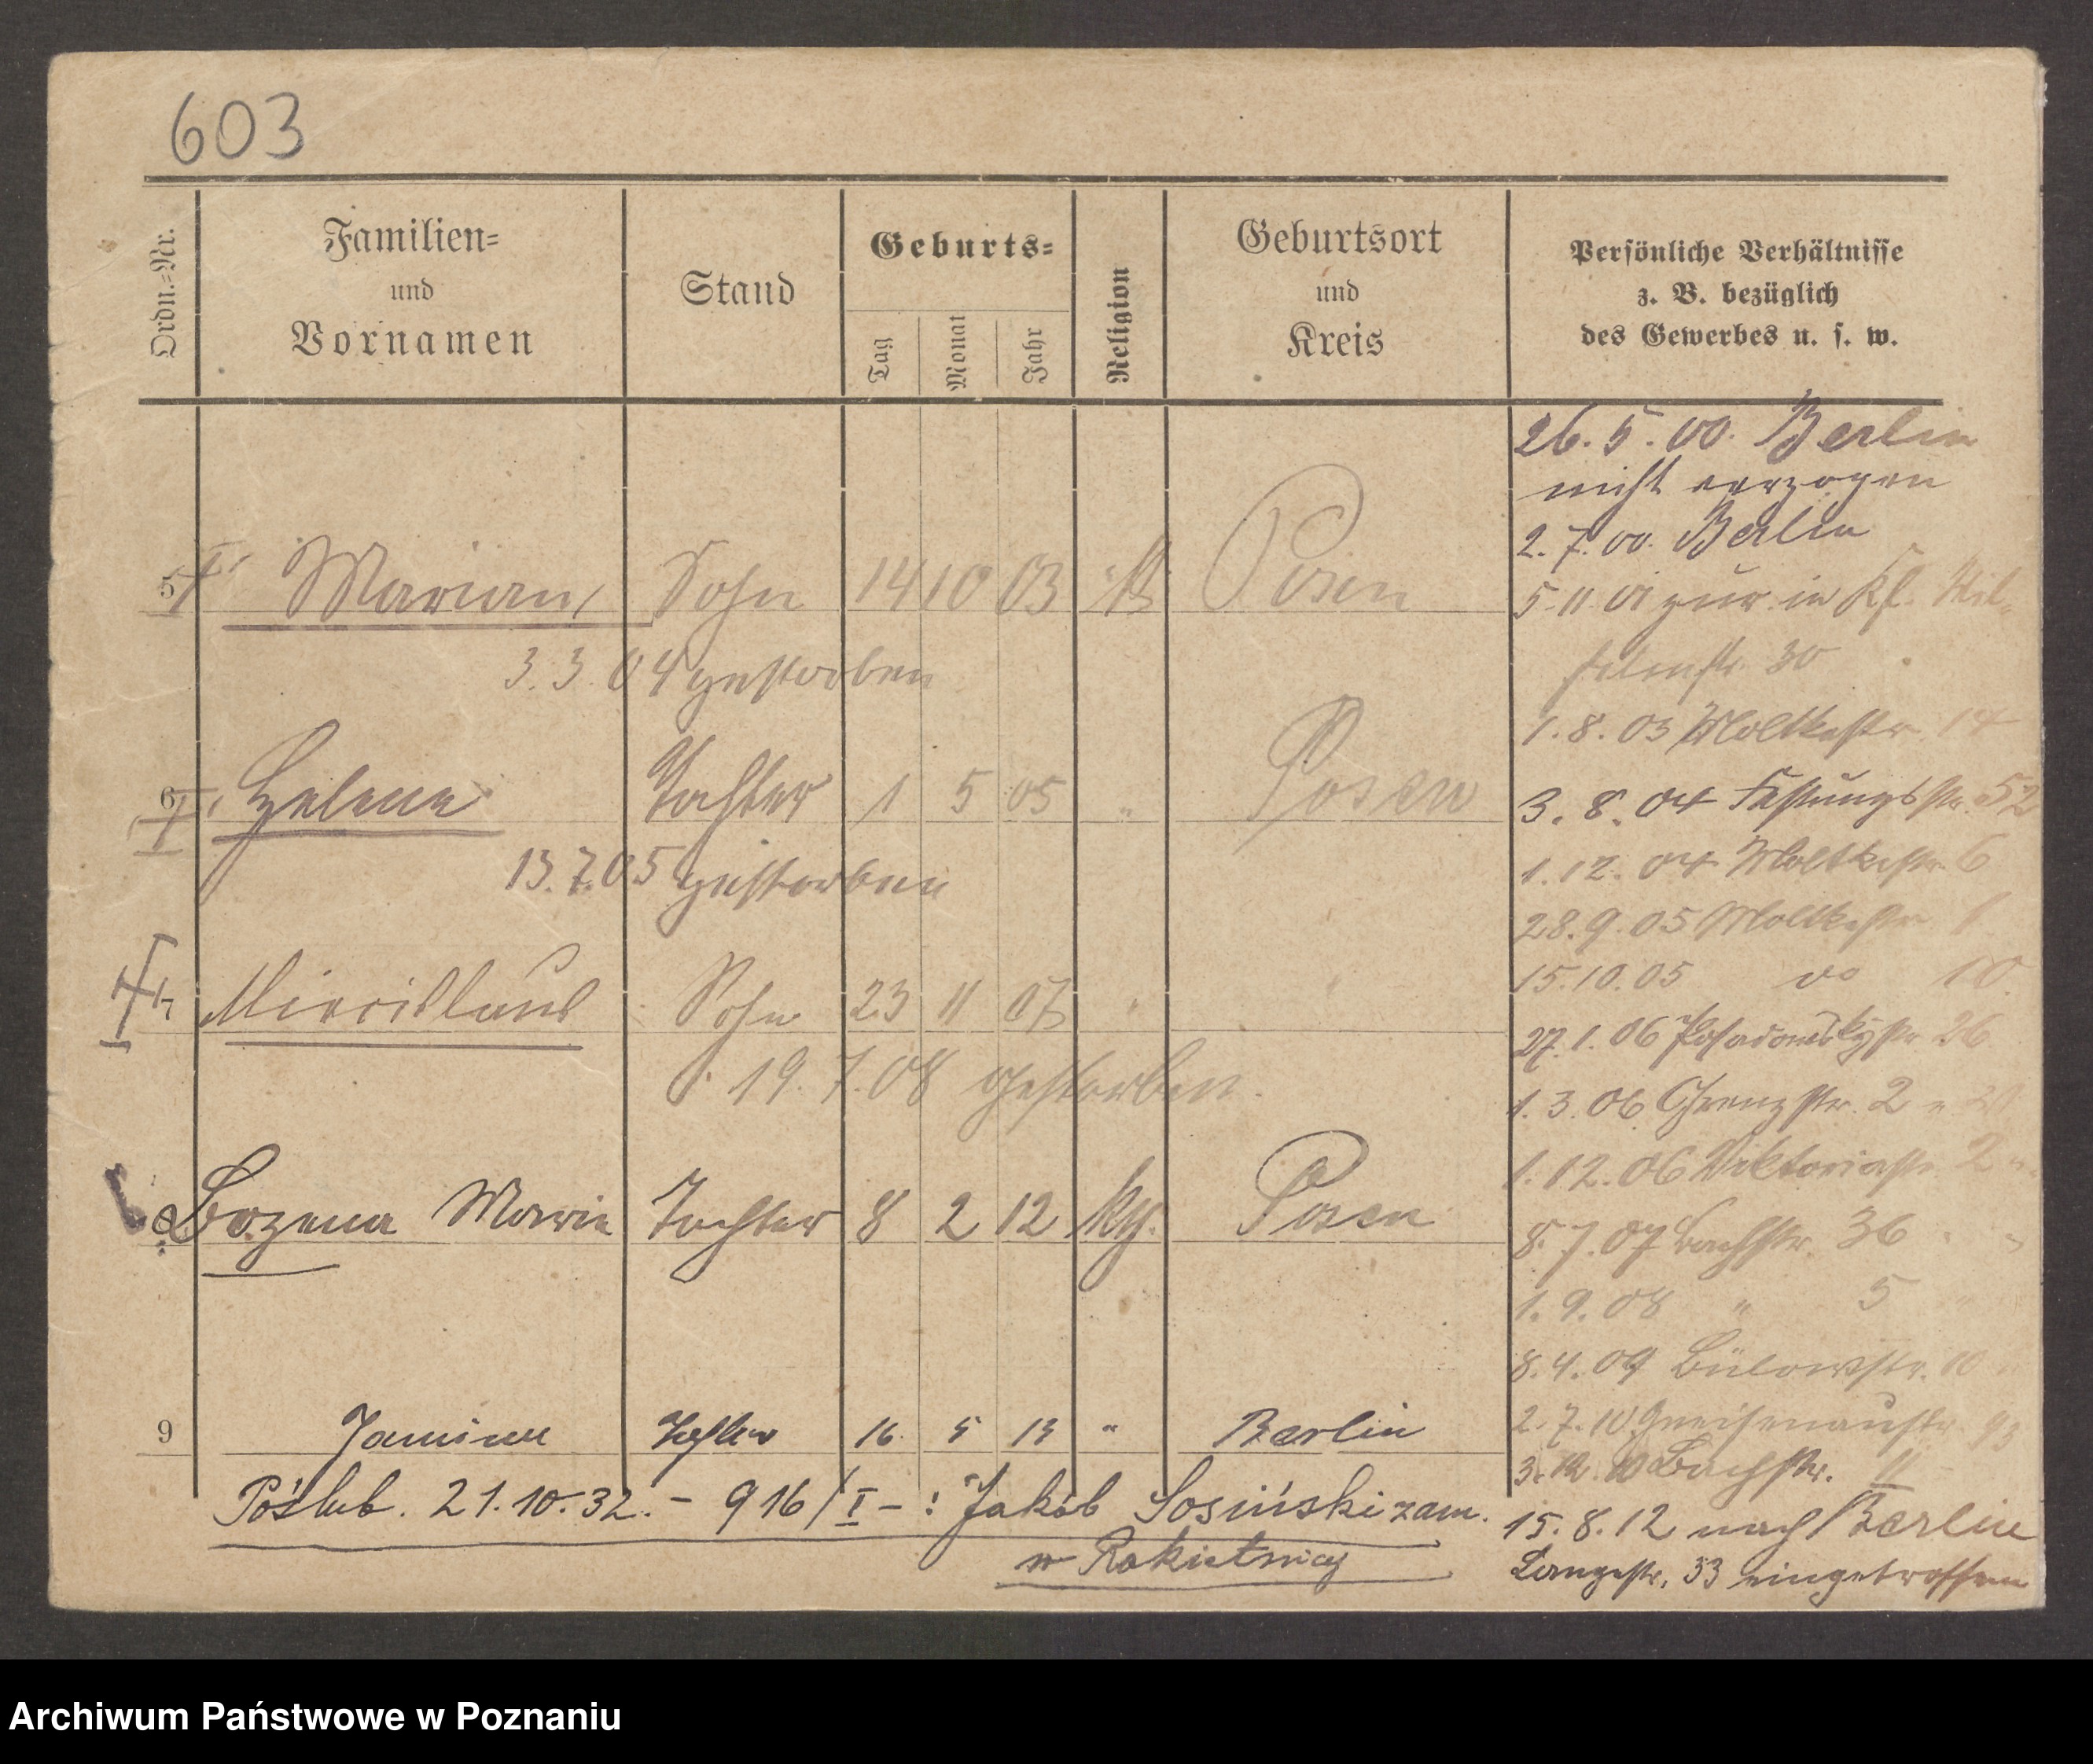 603
Ordn.=Nr.
Familien=
und
Vornamen
Stand
Geburts=
Tag
Monat
Jahr
Religion
Geburtsort
und
Kreis
Persönliche Verhältnisse
z. B. bezüglich
des Gewerbes u. s. w.
5 Marian, Sohn 14 10 03 Posen
3.3.04 gestorben
6 Helene Tochter 1 5 05 " Posen
13.7.05 gestorben
7 Miecislaus Sohn 23 11 07 " "
19.7.08 gestorben.
Bozena Marie Tochter 8 2 12 Posen
9 Janina Tochter 16 5 13 " Berlin
Poślub. 21.10.32. - 916/I - : Jakób Sosiński zam.
w Rokietnicy
26.5.00. Berlin
nicht verzogen
2.7.00. Berlin
5 11 01 zur. in Kf.
30
1.8.03 Moltkestr. 14
3.8.04 Festungsstr. 52
1.12.04 Moltkestr. 6
28.9.05 Moltkestr
15.10.05 do 10.
27.1.06 Posadowskystr 26
1.3.06 Grenzstr. 2
1.12.06 Viktoriastr. 2
8.7.07 Bachstr. 36
1.9.08 " 5
8.4.09 Bülowstr. 10
2.7.10. Gneisenaustr 93
Bachstr. 11
15.8.12 nach Berlin
Langestr. 53 eingetroffen
Archiwum Państwowe w Poznaniu